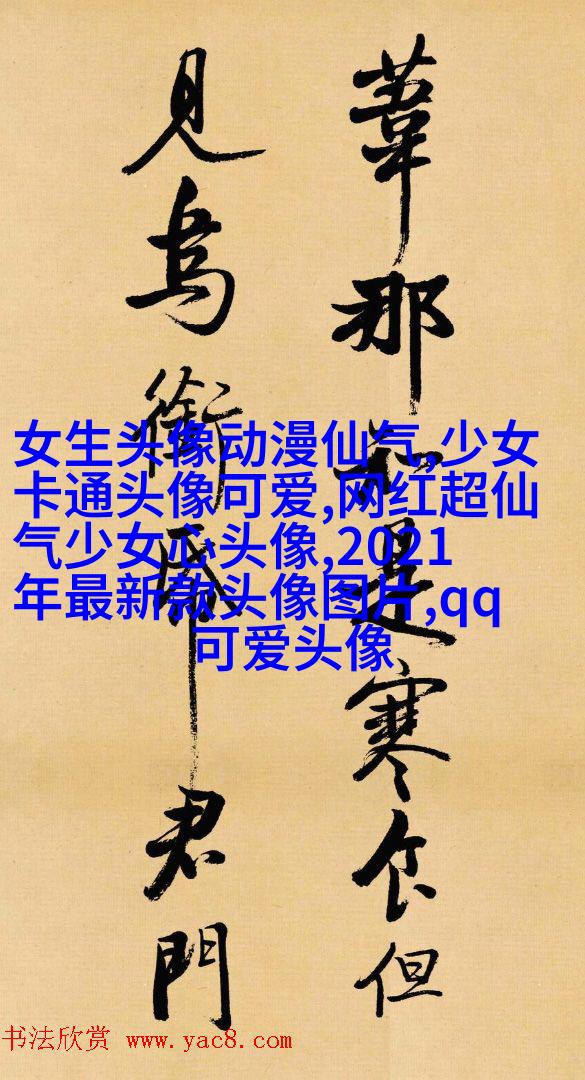 葦那知是寒食但
見烏銜帋君門
女生头像动漫仙气,少女
卡通头像可爱,网红超仙
气少女心头像,2021
年最新款头像图片,qq
可爱头像
书法欣赏 www.yac8.com